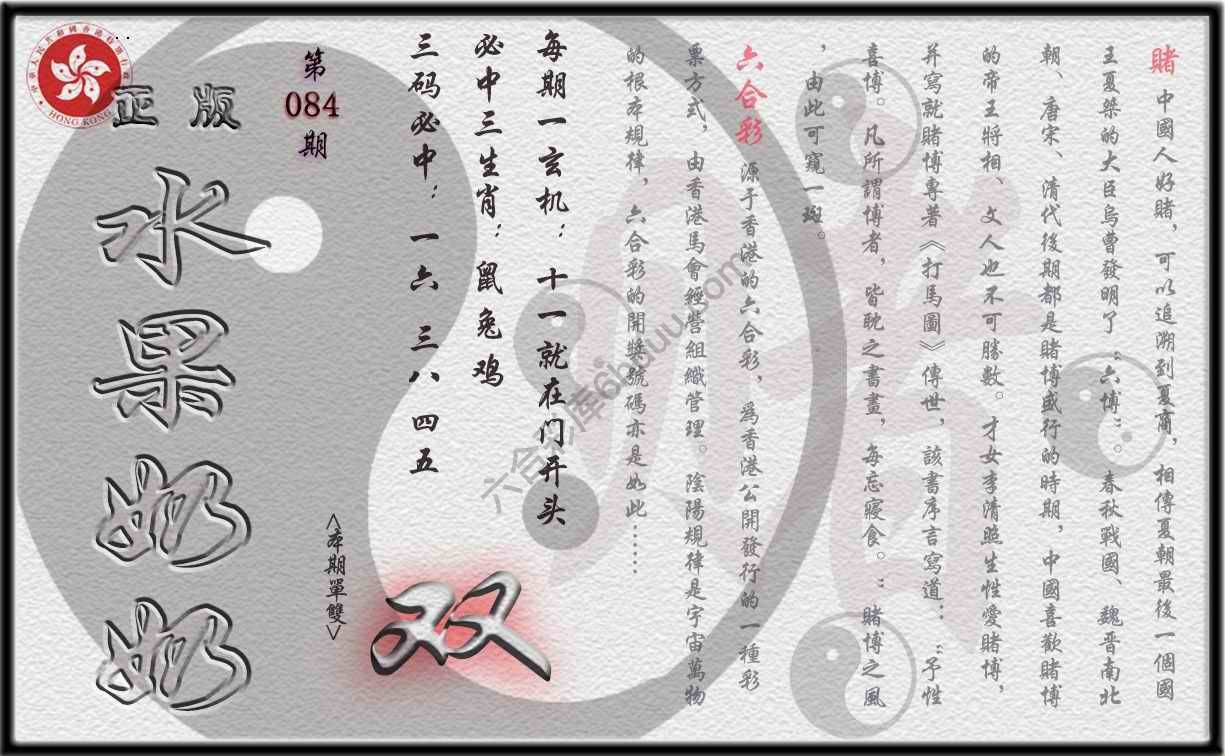 賭 中國人好賭，可以追溯到夏商，相傳夏朝最後一個國
王夏桀的大臣烏曹發明了“六博”。春秋戰國、魏晋南北
朝、唐宋、清代後期都是賭博盛行的時期，中國喜歡賭博
的帝王將相、文人也不可勝數。才女李清照生性愛賭博，
并寫就賭博專著《打馬圖》傳世，該書序言寫道：“予性
喜博。凡所謂博者，皆耽之書畫，每忘寢食。”賭博之風
，由此可窺一斑。
六合彩 源于香港的六合彩，爲香港公開發行的一種彩
票方式，由香港馬會經營組織管理。陰陽規律是宇宙萬物
的根本規律，六合彩的開獎號碼亦是如此……
每期一玄机：十一就在门开头
必中三生肖：鼠兔鸡
三码必中：一六 三八 四五
第
084
期
<本期單雙>
双
正版
水果奶奶
HONG KONG
六合彩库6hduuu.com